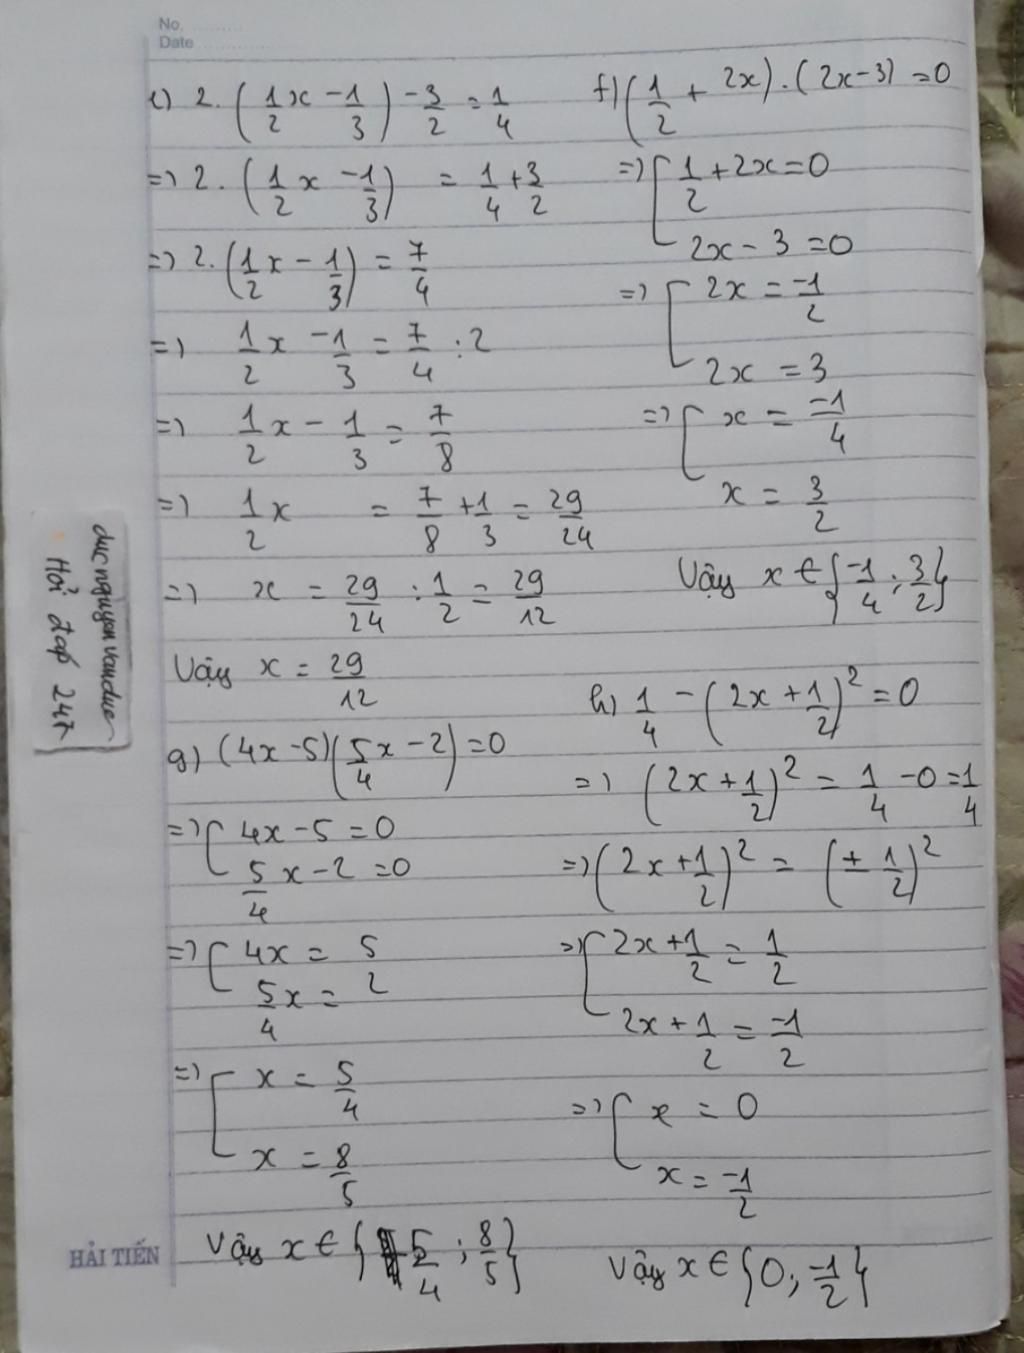 No.
Date
e) 2.(1/2 x - 1/3) - 3/2 = 1/4
=> 2.(1/2 x - 1/3) = 1/4 + 3/2
=> 2.(1/2 x - 1/3) = 7/4
=> 1/2 x - 1/3 = 7/4 : 2
=> 1/2 x - 1/3 = 7/8
=> 1/2 x = 7/8 + 1/3 = 29/24
=> x = 29/24 : 1/2 = 29/12
Vậy x = 29/12
g) (4x - 5)(5/4 x - 2) = 0
=> [ 4x - 5 = 0
5/4 x - 2 = 0
=> [ 4x = 5
5/4 x = 2
=> [ x = 5/4
x = 8/5
Vậy x ∈ {5/4 ; 8/5}
f) (1/2 + 2x).(2x - 3) = 0
=> [ 1/2 + 2x = 0
2x - 3 = 0
=> [ 2x = -1/2
2x = 3
=> [ x = -1/4
x = 3/2
Vậy x ∈ {-1/4 ; 3/2}
h) 1/4 - (2x + 1/2)² = 0
=> (2x + 1/2)² = 1/4 - 0 = 1/4
=> (2x + 1/2)² = (± 1/2)²
=> [ 2x + 1/2 = 1/2
2x + 1/2 = -1/2
=> [ x = 0
x = -1/2
Vậy x ∈ {0 ; -1/2}
duc nguyen van duc
Hỏi đáp 247
HẢI TIẾN